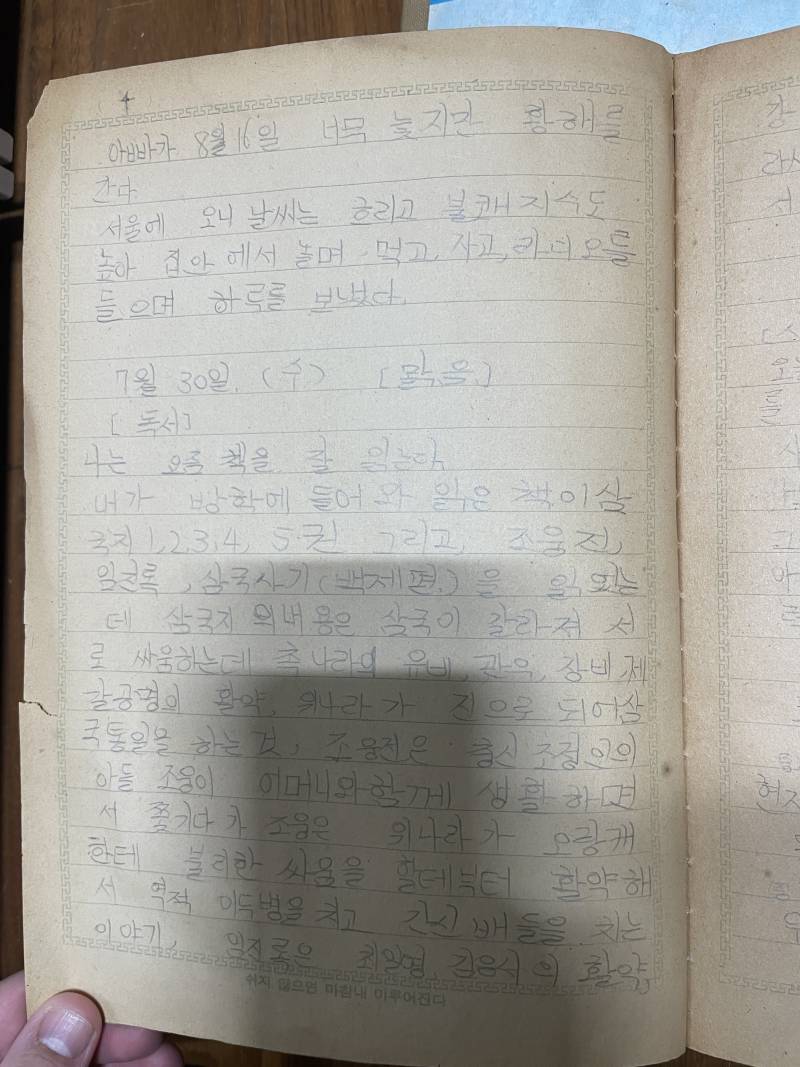 4
아빠가 8월 16일 너무 늦지만 황해를
간다
서울에 오니 날씨는 흐리고 불쾌지수도
높아 집안에서 놀며 먹고, 자고, 라디오를
들으며 하루를 보냈다.
7월 30일. (수) [맑음.]
[독서]
나는 요즘 책을 잘 읽는다.
내가 방학에 들어와 읽은 책이 삼
국지 1, 2, 3, 4, 5권 그리고, 조웅전,
임진록, 삼국사기(백제편.)을 읽었는
데 삼국지의 내용은 삼국이 갈라져 서
로 싸움하는데 촉나라의 유비, 관우, 장비, 제
갈공명의 활약, 위나라가 진으로 되어 삼
국통일을 하는 것, 조웅전은 충신 조정인의
아들 조웅이 어머니와 함께 생활하면
서 쫓기다가 조웅은 위나라가 오랑캐
한테 불리한 싸움을 할테부터 활약해
서 역적 이두병을 치고 간신배들을 치는
이야기, 임진록은 최일영, 김응서의 활약,
쉬지 않으면 마침내 이루어진다